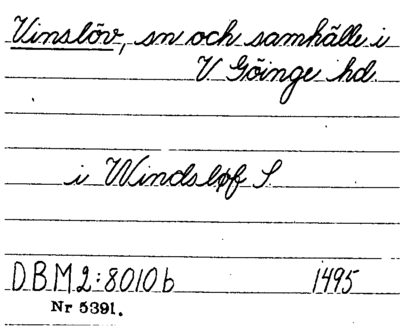 Vinslöv, sn och samhälle i
V Göinge hd.
i Windsløf S.
DBM 2:8010b 1495
Nr 5391.